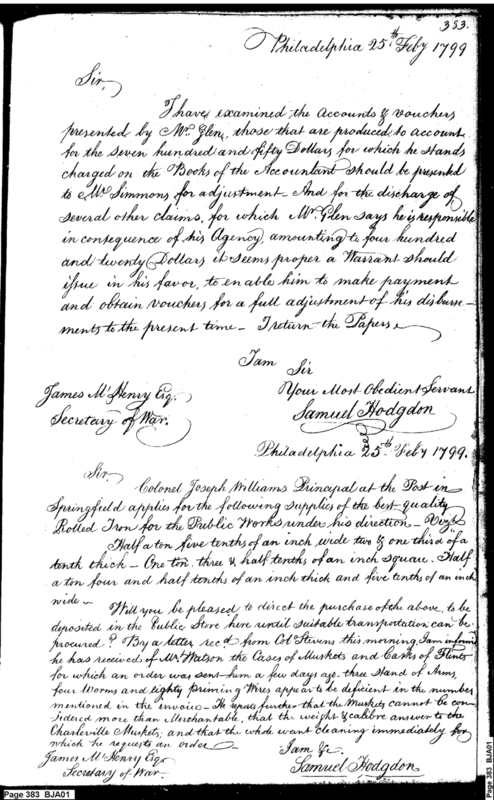 353.
Philadelphia 25th Feby 1799
Sir,
I have examined the Accounts & Vouchers
presented by Mr. Glen, those that are produced to account
for the seven hundred and fifty Dollars for which he stands
charged on the Books of the Accountant should be presented
to Mr Simmons for adjustment - And for the discharge of
several other claims, for which Mr. Glen says he is responsible
in consequence of his Agency, amounting to four hundred
and twenty Dollars it seems proper a Warrant should
issue in his favor, to enable him to make payment
and obtain vouchers for a full adjustment of his disburse-
ments to the present time - I return the Papers
I am
Sir
Your Most Obedient Servant
James McHenry Esq.
Samuel Hodgdon
Secretary of War.
Philadelphia 25th Feby 1799.
Sir,
Colonel Joseph Williams Principal at the Post in
Springfield applies for the following supplies of the best quality
Rolled Iron for the Public Works under his direction - Vizt
Half a ton five tenths of an inch wide two & one third of a
tenth thick - One ton three & half tenths of an inch square. Half
a ton four and half tenths of an inch thick and five tenths of an inch
wide -
Will you be pleased to direct the purchase of the above, to be
deposited in the Public Store here until suitable transportation can be
procured? By a letter recd from Col. Stevens this morning, I am informd
he has received of Mr. Watson the Cases of Muskets and Casks of Flints
for which an order was sent him a few days ago. three Stand of Arms,
four Worms and eighty priming Wires appear to be deficient in the number
mentioned in the invoice - He reports further that the Muskets cannot be con-
sidered more than Merchantable, that the weight & calibre answer to the
Charleville Muskets, and that the whole want cleaning immediately for
which he requests an order -
I am &c
James McHenry Esqr.
Samuel Hodgdon
Secretary of War.
Page 383 BJA01
Page 383 BJA01